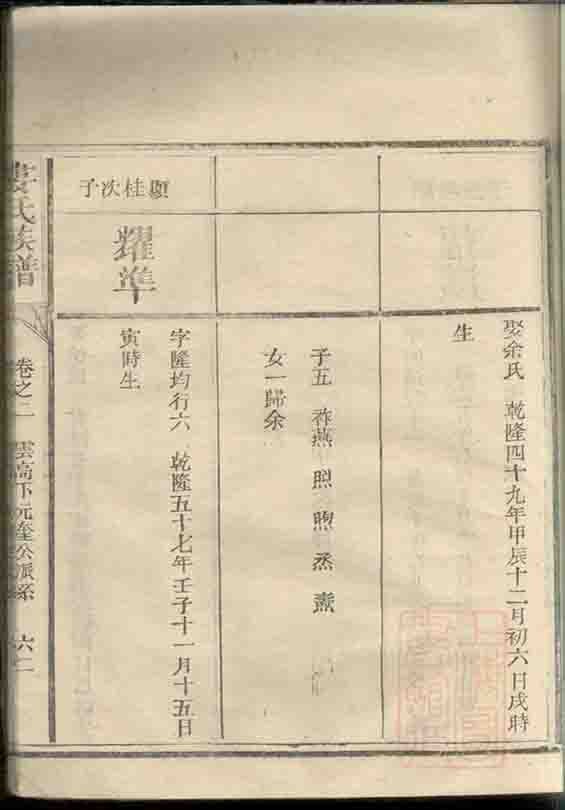 娶余氏 乾隆四十九年甲辰十二月初六日戌時
生
子五 祚燕 照 煦 烝 燾
女一歸余
顯桂次子
耀準
字隆均行六 乾隆五十七年壬子十一月十五日
寅時生
氏族譜
卷之二 雲高下元奎公派系 六二